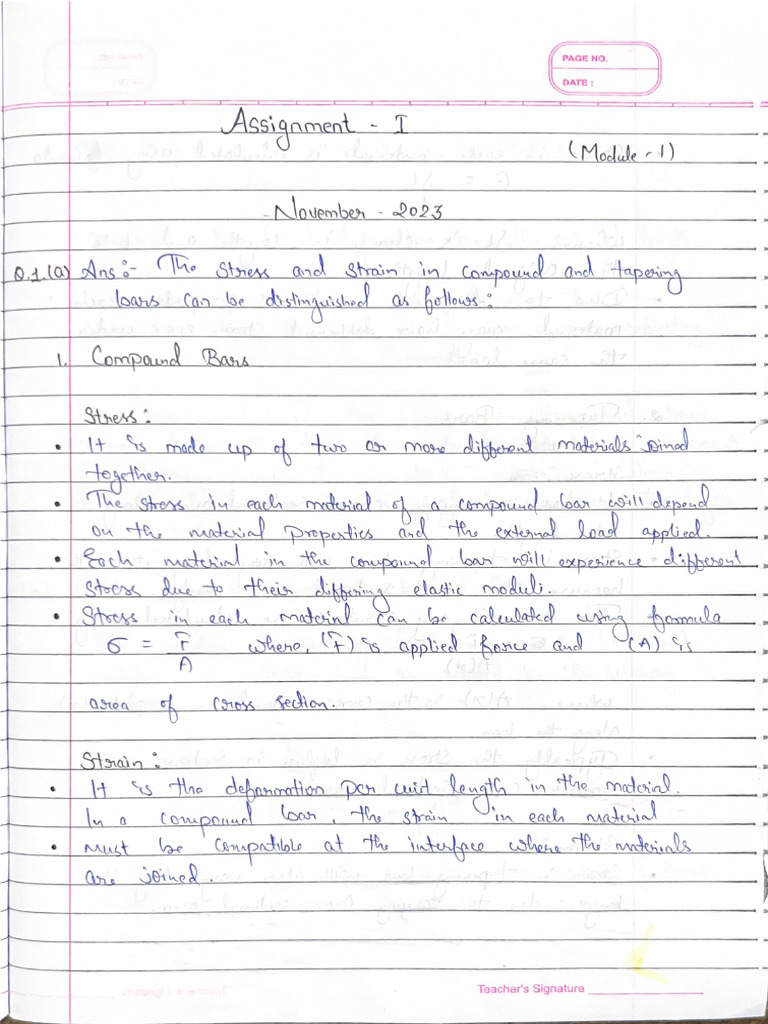 PAGE NO.
DATE :
Assignment - I
(Module - 1)
- November - 2023
Q.1.(a) Ans :- The stress and strain in compound and tapering
bars can be distinguished as follows :
1. Compound Bars
Stress :
• It is made up of two or more different materials joined
together.
• The stress in each material of a compound bar will depend
on the material properties and the external load applied.
• Each material in the compound bar will experience different
stress due to their differing elastic moduli.
• Stress in each material can be calculated using formula
σ = F/A where, (F) is applied force and (A) is
area of cross section.
Strain :
• It is the deformation per unit length in the material.
In a compound bar, the strain in each material
• must be compatible at the interface where the materials
are joined.
Teacher's Signature